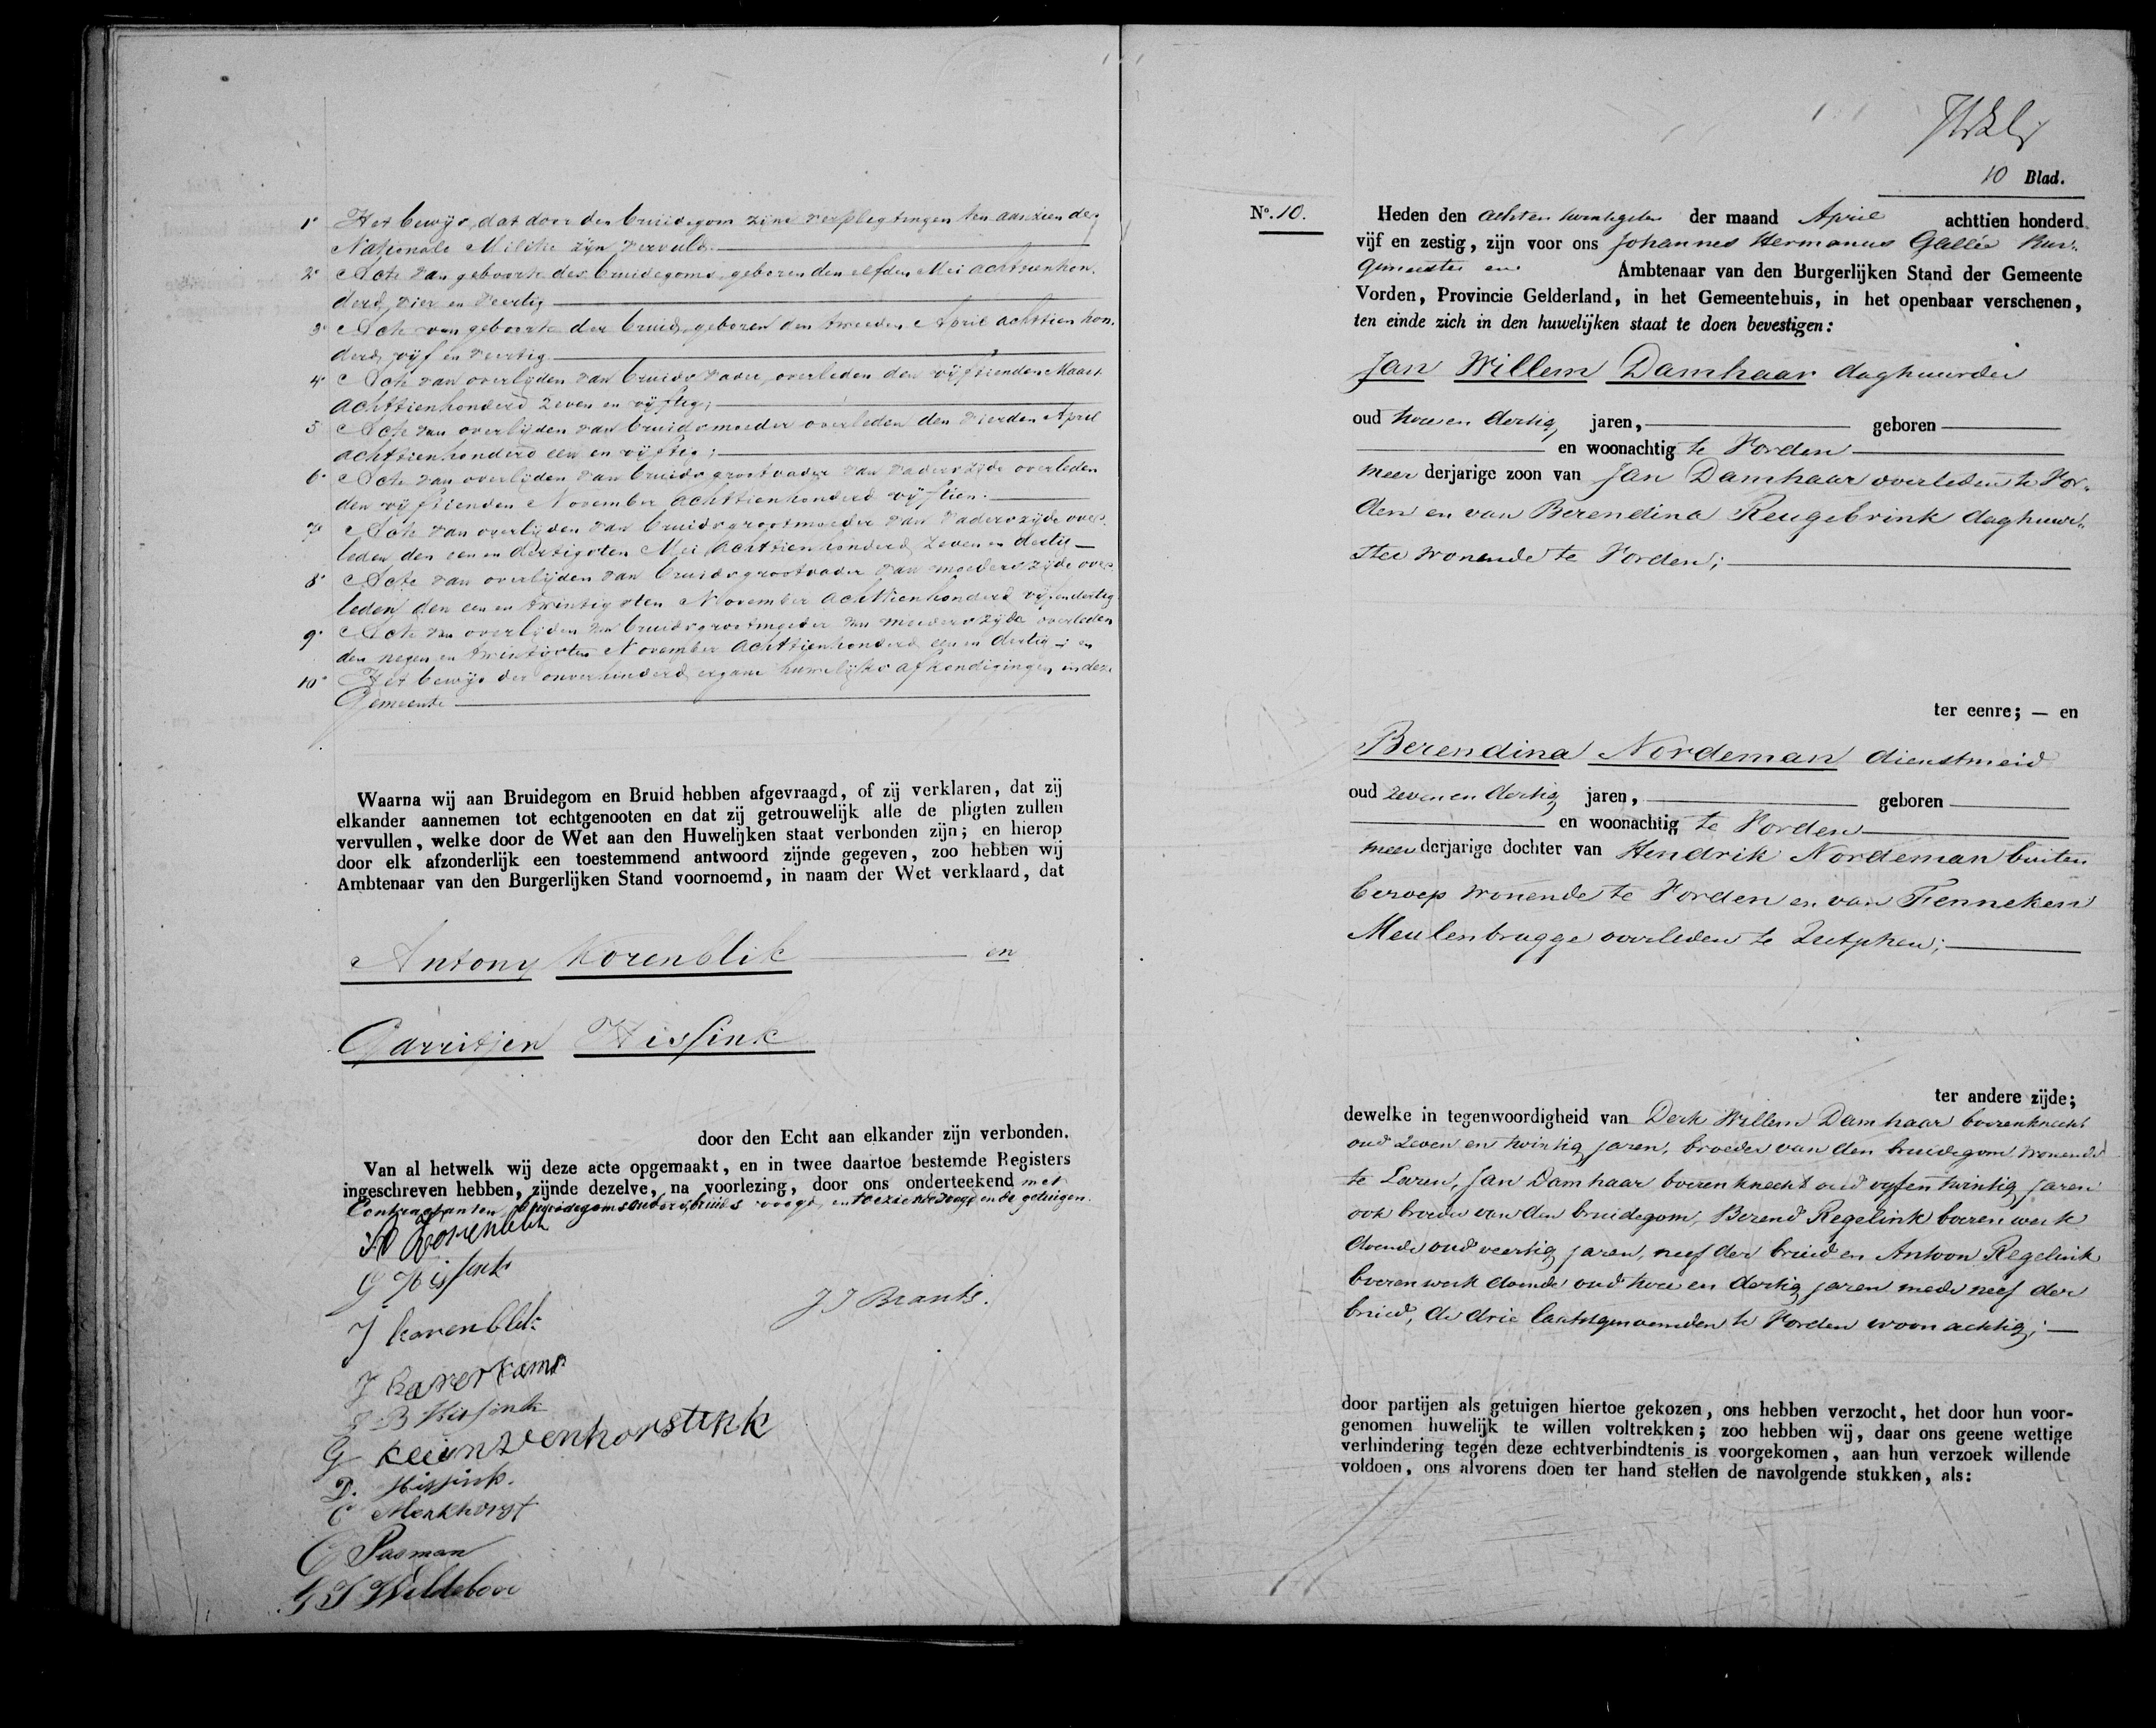 1° Het bewijs, dat door den bruidegom zijne verpligtingen ten aanzien der
Nationale Militie zijn vervuld.
2° Acte van geboorte des bruidegoms, geboren den elfden Mei achttienhon.
derd, vier en veertig
3° Acte van geboorte der bruid, geboren den tweeden April achttien hon.
derd, vijf en veertig
4° Acte van overlijden van bruids vader, overleden den vijftienden Maart
achttienhonderd zeven en vijftig;
5 Acte van overlijden van bruids moeder overleden den vierden April
achttienhonderd een en vijftig;
6° Acte van overlijden van bruids grootvader van vaders zijde overleden
den vijftienden November achttienhonderd vijftien.
7° Acte van overlijden van bruids grootmoeder van vaders zijde over
leden den een en dertigsten Mei achttienhonderd zeven en dertig
8° Acte van overlijden van bruids grootvader van moeders zijde over
leden den een en twintigsten November achttienhonderd vijfendertig
9° Acte van overlijden van bruids grootmoeder van moeders zijde overleden
den negen en twintigsten November achttienhonderd een en dertig; en
10° Het bewijs der onverhinderd ergane huwelijks afkondigingen in deze
Gemeente
Waarna wij aan Bruidegom en Bruid hebben afgevraagd, of zij verklaren, dat zij
elkander aannemen tot echtgenooten en dat zij getrouwelijk alle de pligten zullen
vervullen, welke door de Wet aan den Huwelijken staat verbonden zijn; en hierop
door elk afzonderlijk een toestemmend antwoord zijnde gegeven, zoo hebben wij
Ambtenaar van den Burgerlijken Stand voornoemd, in naam der Wet verklaard, dat
Antony Korenblik en
Garritjen Hissink
door den Echt aan elkander zijn verbonden.
Van al hetwelk wij deze acte opgemaakt, en in twee daartoe bestemde Registers
ingeschreven hebben, zijnde dezelve, na voorlezing, door ons onderteekend met
Contractanten, bruidegoms ouders, bruids voogd en toeziende voogd en de getuigen.
Korenblik
G Hissink
J J Brants.
J korenblik
J haverkamp
B Hissink
G kleinzVenhorstink
D. Hissink.
Menkhorst
G Pasman
G J Wildeboer
10 Blad.
N°. 10. Heden den achten twintigsten der maand April achttien honderd
vijf en zestig, zijn voor ons Johannes Hermanus Gallée Bur.
gemeester en Ambtenaar van den Burgerlijken Stand der Gemeente
Vorden, Provincie Gelderland, in het Gemeentehuis, in het openbaar verschenen,
ten einde zich in den huwelijken staat te doen bevestigen:
Jan Willem Damhaar daghuurder
oud twee en dertig jaren, geboren
en woonachtig te Vorden
meer derjarige zoon van Jan Damhaar overleden te Vor„
den en van Berendina Reugebrink daghuur„
ster wonende te Vorden;
ter eenre; — en
Berendina Nordeman dienstmeid
oud zeven en dertig jaren, geboren
en woonachtig te Vorden
meer derjarige dochter van Hendrik Nordeman buiten
beroep wonende te Vorden en van Fenneken
Meulenbrugge overleden te Zutphen;
ter andere zijde;
dewelke in tegenwoordigheid van Derk Willem Damhaar boerenknecht
oud zeven en twintig jaren, broeder van den bruidegom, wonende
te Laren, Jan Damhaar boerenknecht oud vijf en twintig jaren
ook broeder van den bruidegom, Berend Regelink boeren werk
doende oud veertig jaren, neef der bruid en Antoon Regelink
boeren werk doende oud twee en dertig jaren mede neef der
bruid, de drie laatstgenoemden te Vorden woonachtig;
door partijen als getuigen hiertoe gekozen, ons hebben verzocht, het door hun voor-
genomen huwelijk te willen voltrekken; zoo hebben wij, daar ons geene wettige
verhindering tegen deze echtverbindtenis is voorgekomen, aan hun verzoek willende
voldoen, ons alvorens doen ter hand stellen de navolgende stukken, als: